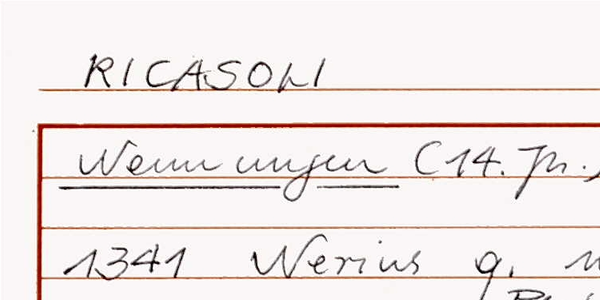 RICASOLI
Nennungen (14. Jh.)
1341 Nerius q.